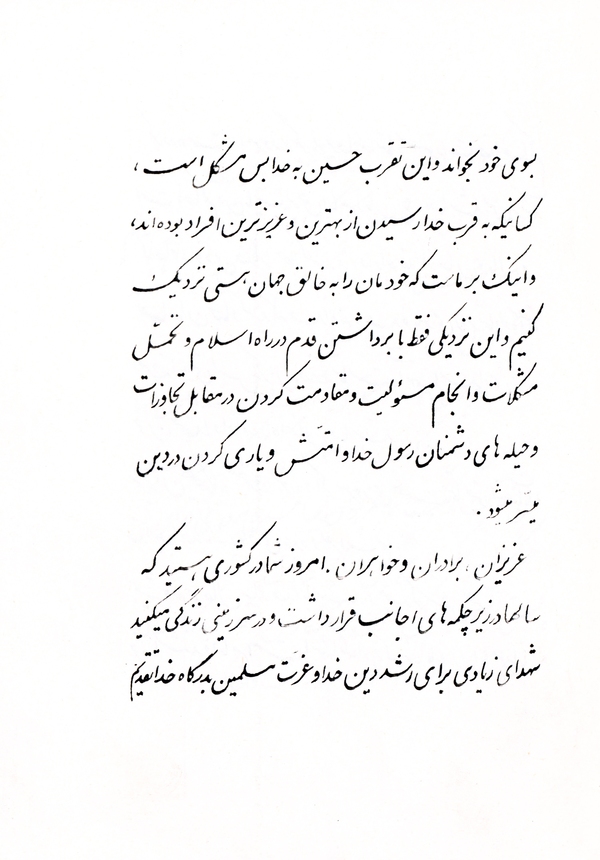 بسوی خود بخواند و این تقرب جستن به خدا بس مشکل است ،
کسانیکه به قرب خدا رسیدن از بهترین و عزیزترین افراد بوده اند،
و اینک بر ماست که خودمان را به خالق جهان هستی نزدیک
کنیم و این نزدیکی فقط با برداشتن قدم در راه اسلام و تحمّل
مشکلات و انجام مسئولیت و مقاومت کردن در مقابل تجاوزات
و حیله های دشمنان رسول خدا و امتش و یاری کردن در دین
میسّر میشود .
عزیزان ، برادران و خواهران . امروز شما در کشوری هستید که
سالها در زیر چکمه های اجانب قرار داشت و در سرزمینی زندگی میکنید
شهدای زیادی برای رشد دین خدا و عزّت مسلمین بدرگاه خدا تقدیم